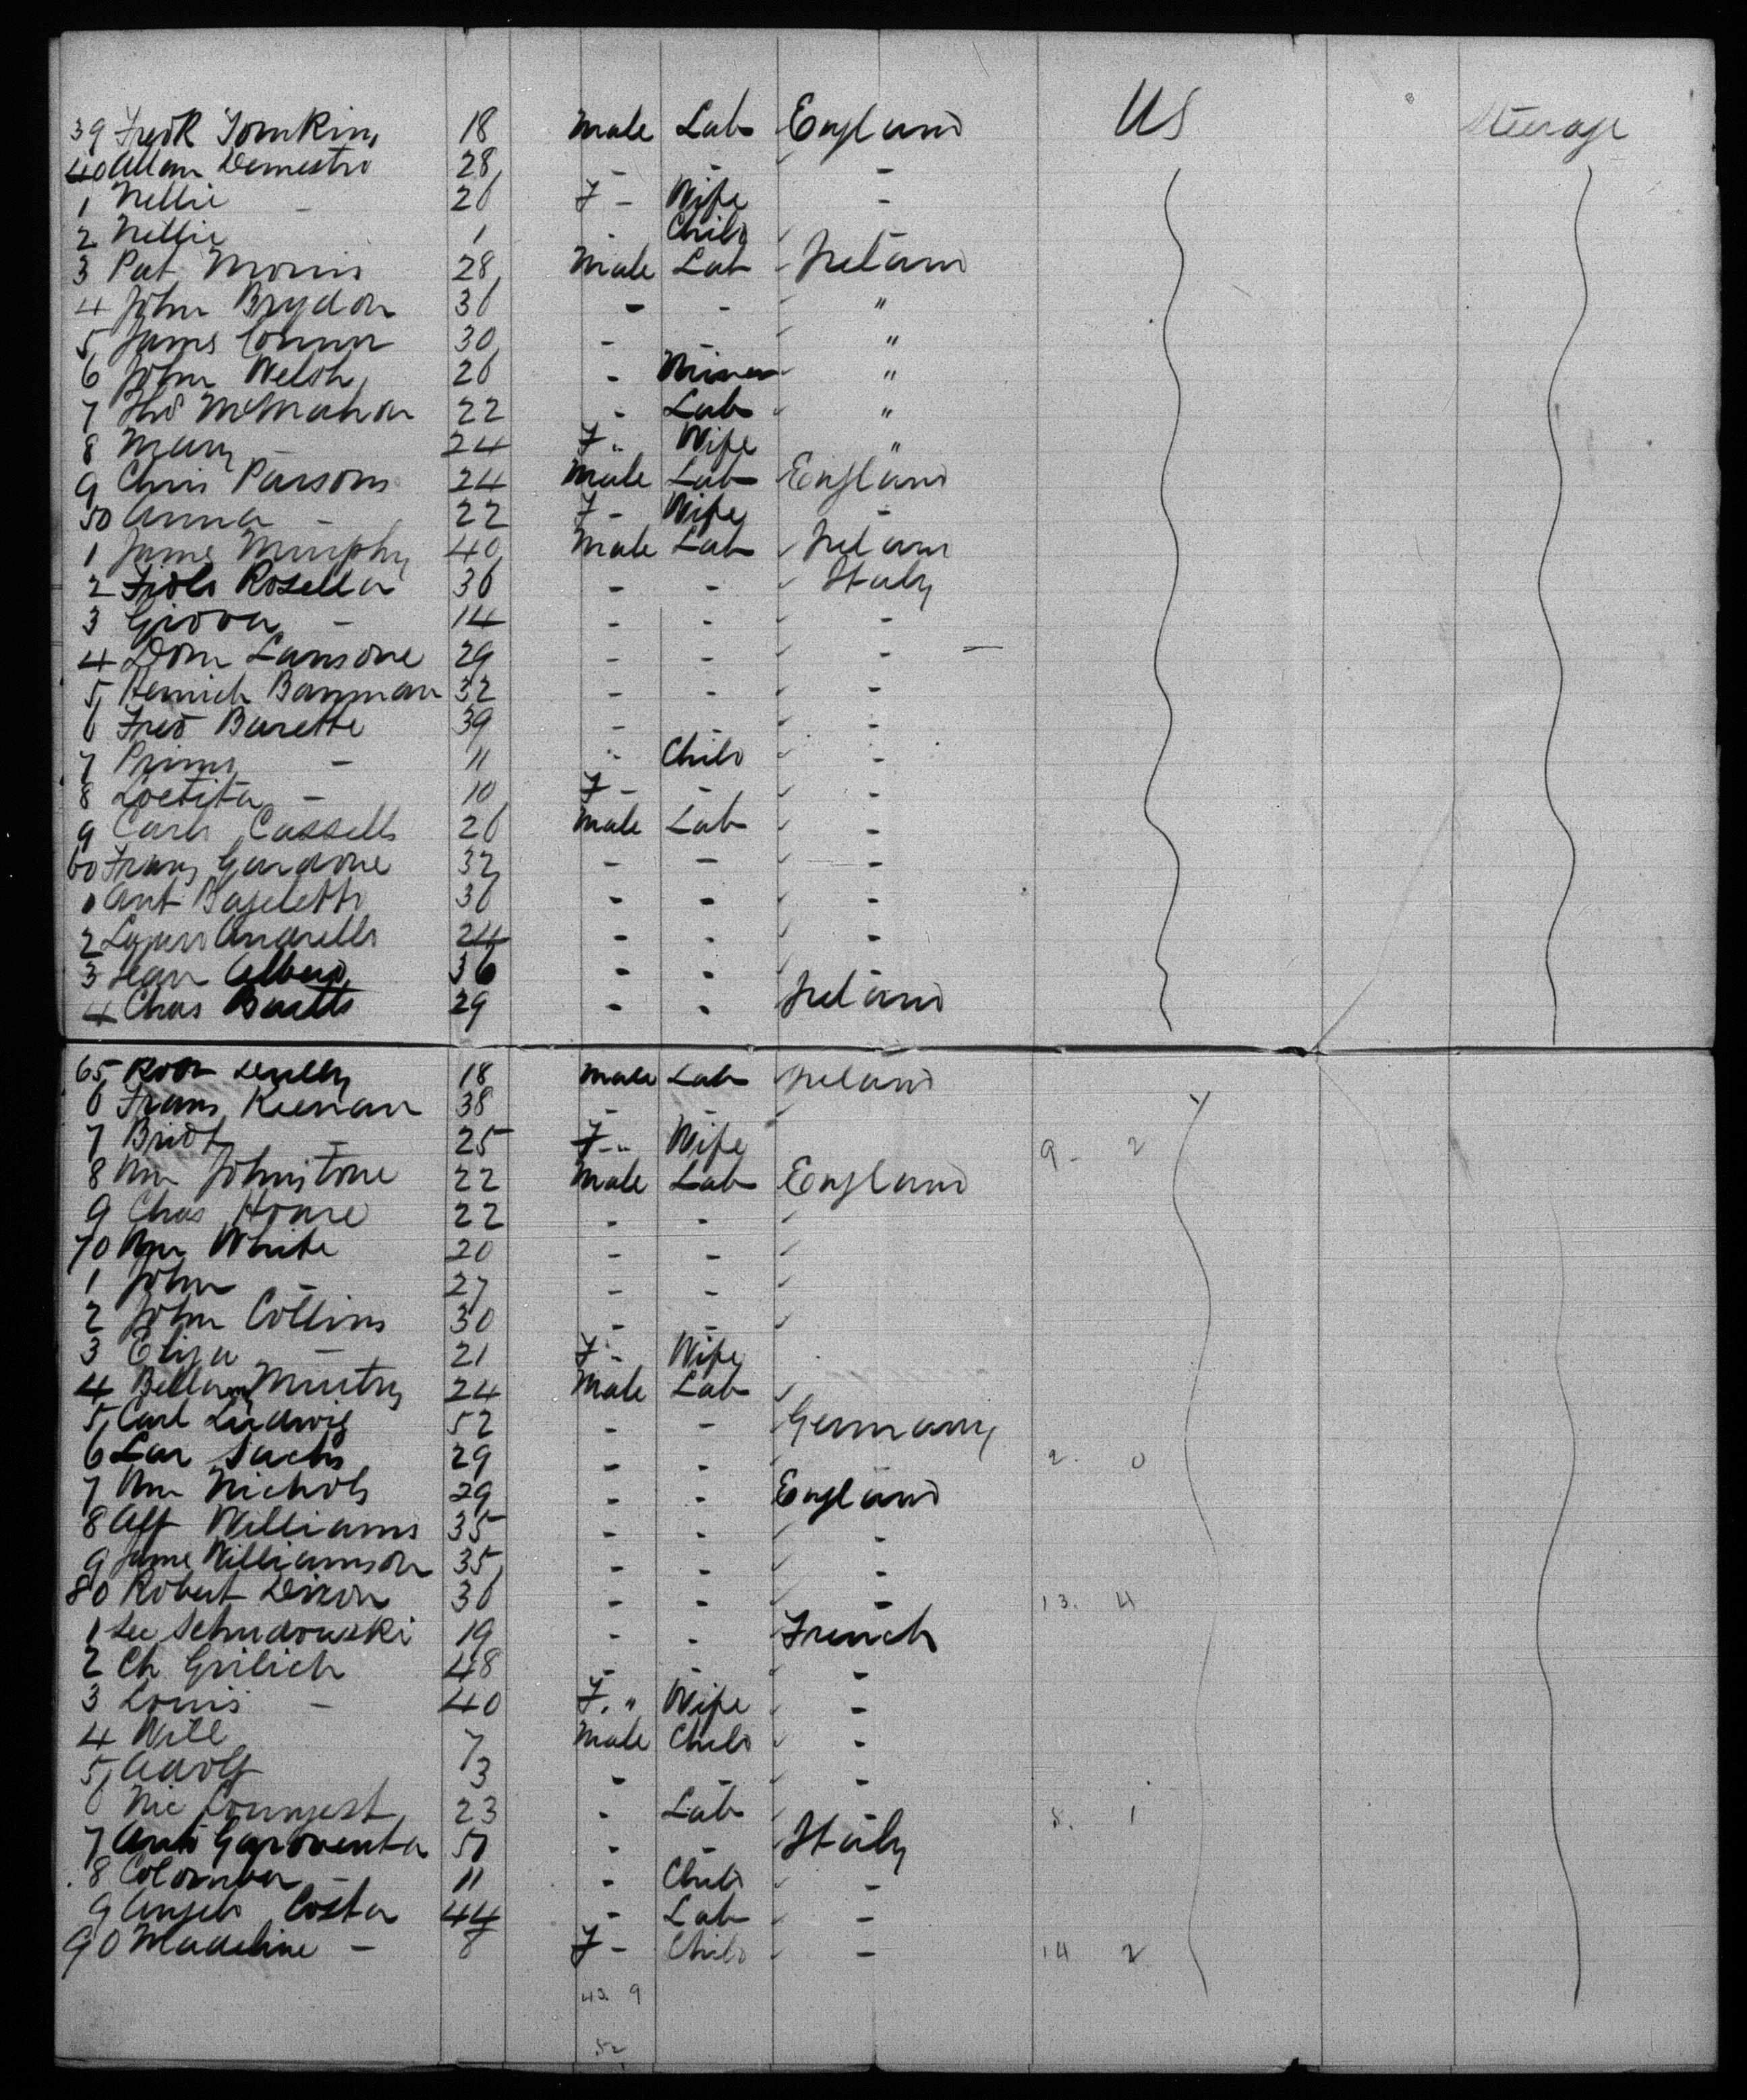 39 Fredk Tomkins 18 Male Lab England US Steerage
40 Allan Demestro 28 - - -
1 Nellie - 26 F - Wife -
2 Nellie 1 - Child -
3 Pat Morris 28 Male Lab Ireland
4 John Brydon 36 - - "
5 James Connor 30 - - "
6 John Welsh 26 - Miner "
7 Thos McMahon 22 - Lab "
8 Mary - 24 F " Wife "
9 Chris Parsons 24 Male Lab England
50 Anna - 22 F - Wife -
1 James Murphy 40 Male Lab Ireland
2 Rosella 36 - - Italy
3 Giova - 14 - - -
4 Dom Lansone 29 - - -
5 Henrich Bauman 32 - - -
6 Fred Barette 39 - - -
7 Primo - 11 " Child -
8 Loetita - 10 F - - -
9 Carlo Cassells 26 Male Lab -
60 Franz Gardone 32 - - -
1 Ant 36 - - -
2 24 - - -
3 36 - -
4 Chas 29 - - Ireland
65 18 Male Lab Ireland
6 Frans Keenan 38 - -
7 Bridt - 25 F - " Wife 9 - 2
8 Wm Johnstone 22 Male Lab England
9 Chas Hoare 22 - -
70 Wm White 20 - -
1 John - 27 - -
2 John Collins 30 - -
3 Eliza - 21 F - Wife
4 24 Male Lab
5 Carl Ludwig 52 - - Germany
6 Sachs 29 - - 2. 0
7 Wm Nichols 29 - - England
8 Alf Williams 35 - - -
9 Jame Williamson 35 - - -
80 Robert Dixon 36 - - - 13. 4
1 19 - - French
2 Ch Grilich 48 - - -
3 Louis - 40 F. " Wife -
4 Will 7 Male Child -
5 Adolf 3 - - -
6 Nic 23 - Lab - 5. 1
7 Garoventa - - Italy
8 Colomba - 11 - Child -
9 Angelo Costa 44 - Lab -
90 Madeline - 8 F - Child - 14 2
43. 9
52